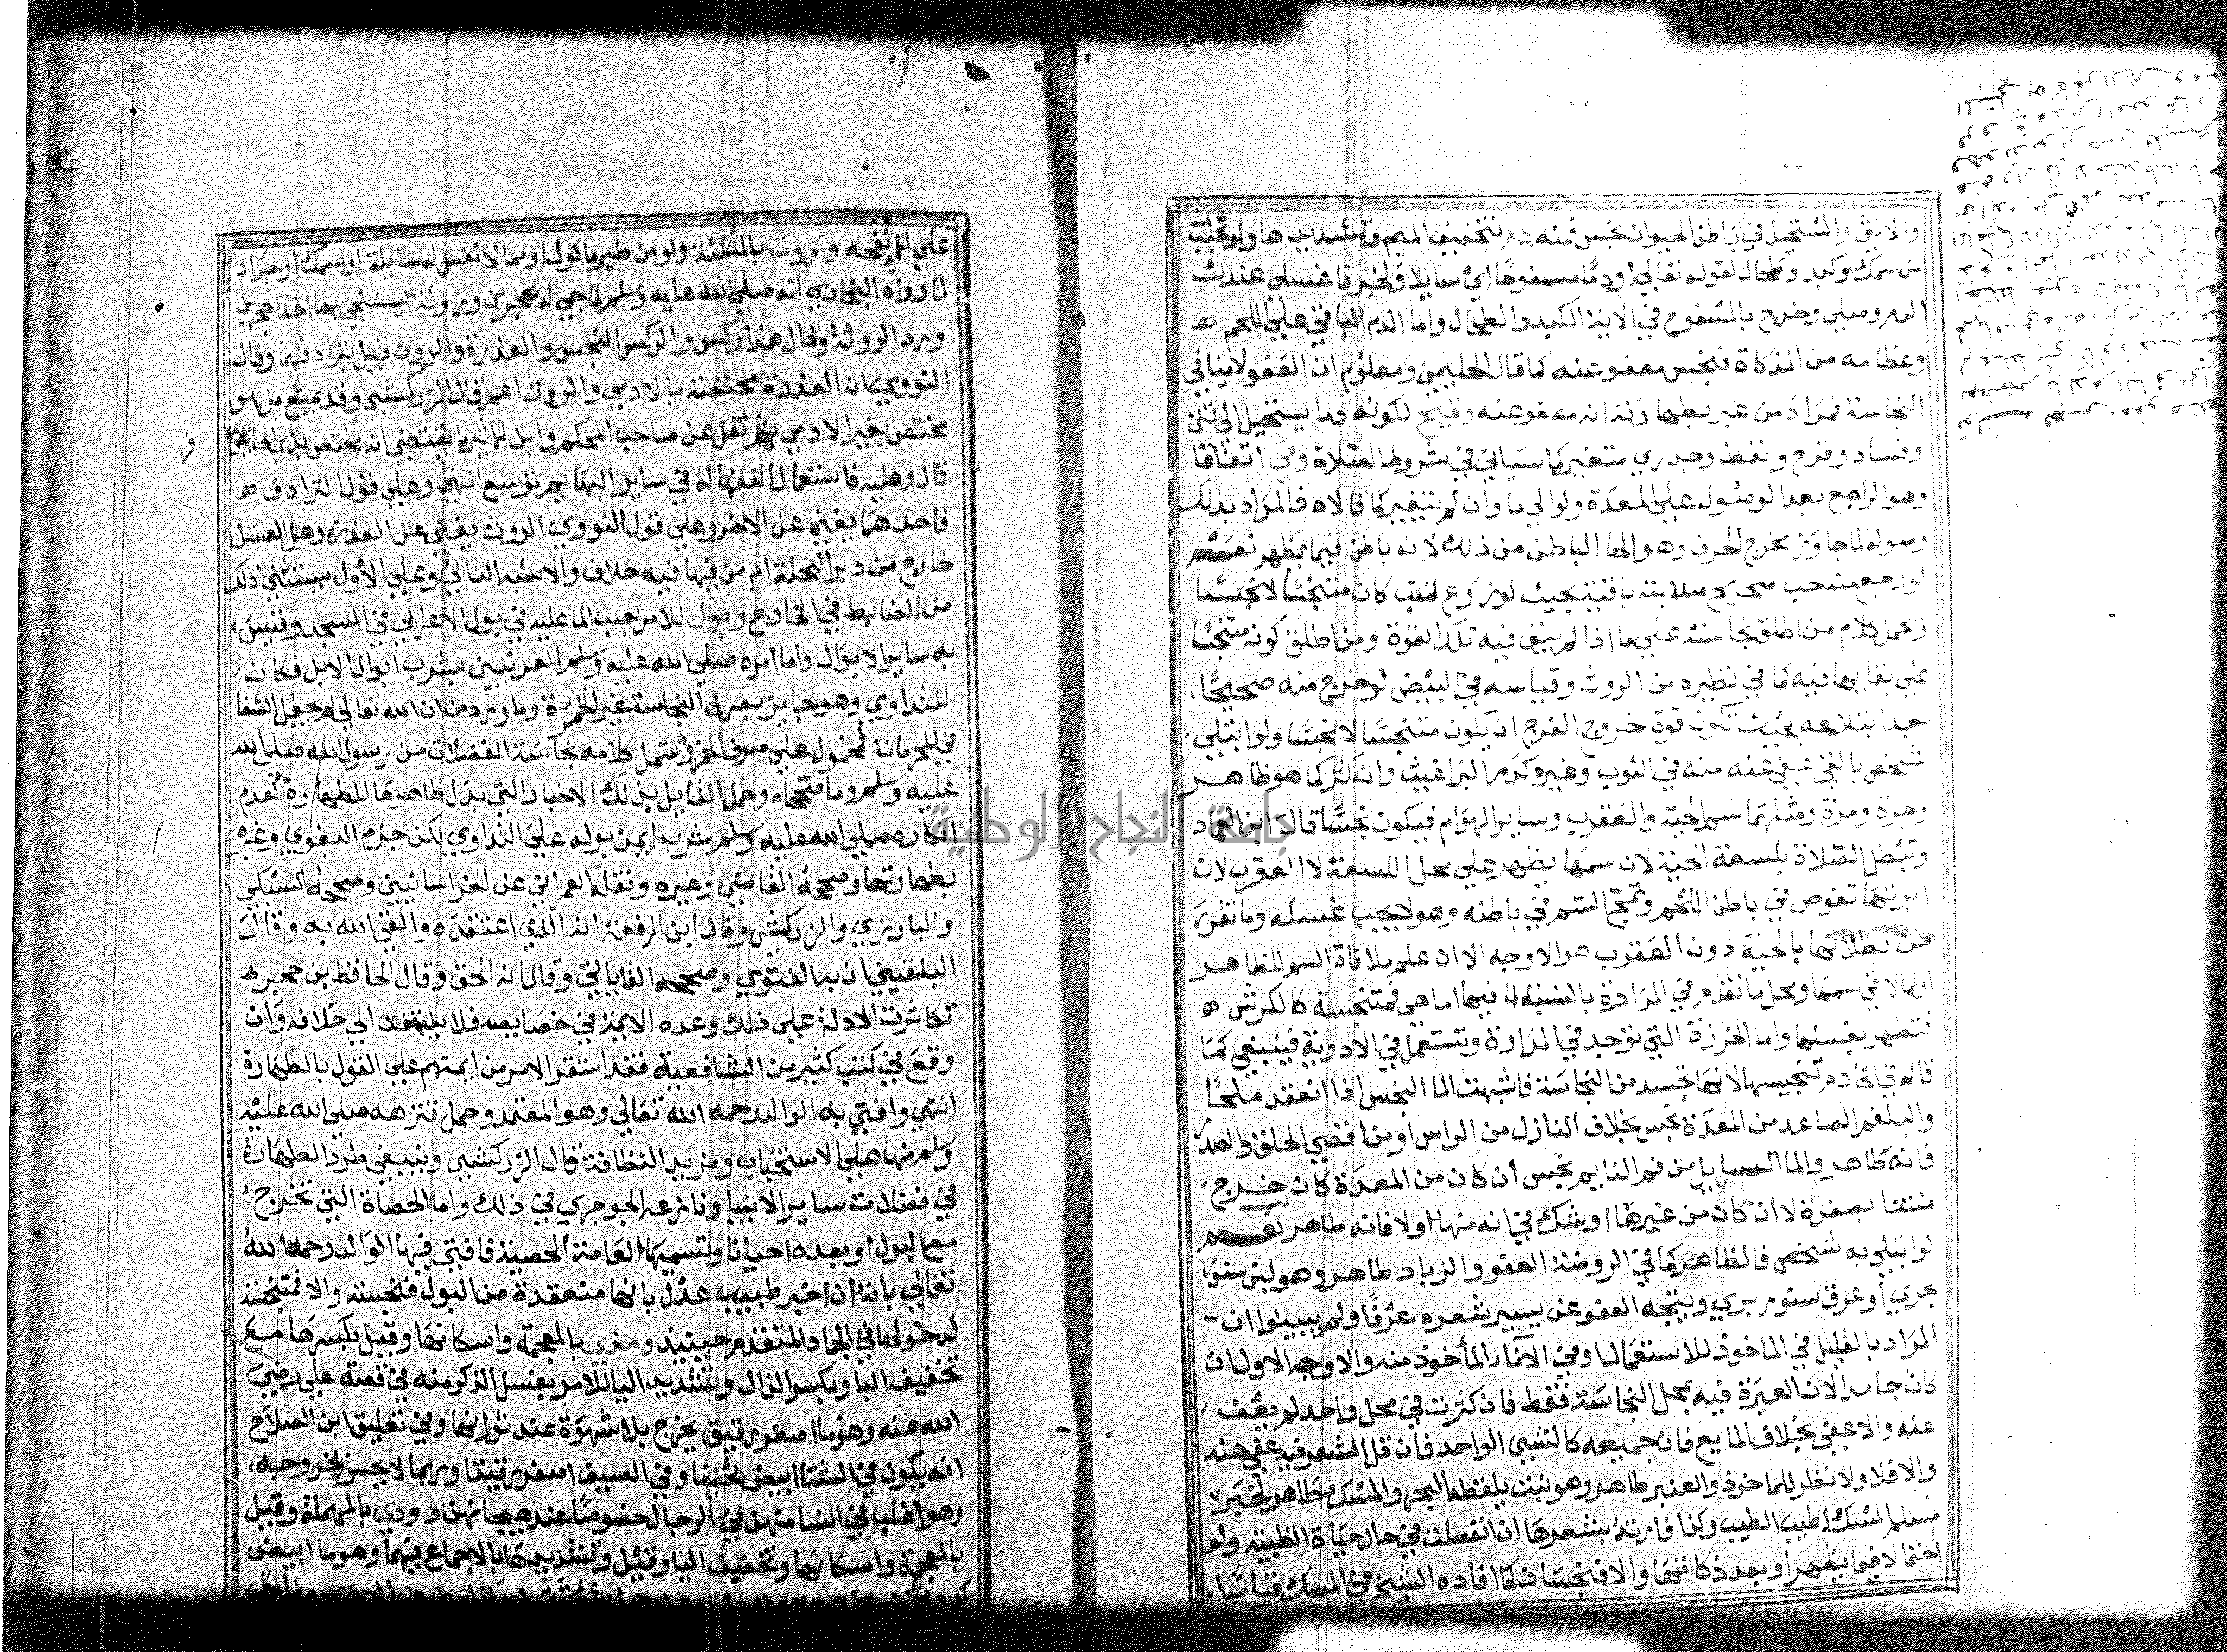 والانثى والمستحيل في باطن الحيوان نجس فمنه دم بتخفيف الميم وتشديدها ولو تحلب
من سمك وكبد وطحال لقوله تعالى او دما مسفوحا اي سايلا ولخبر فاغسلي عندك
الدم وصلي وخرج بالمسفوح في الاية الكبد والطحال واما الدم الباقي على اللحم
وعظامه من المذكاة فنجس معفو عنه كما قال الحليمي ومعلوم ان العفو لا ينافي
النجاسة فمراد من عبر بطهارته انه معفو عنه وقيح لكونه دما يستحيل الى نتن
وفساد وقرح ونفط وجدري متغير كما سياتي في شروط الصلاة وقي اتفاقا
وهو الراجع بعد الوصول على المعدة ولو الى ما وان لم يتغير كما قالاه فالمراد بذلك
وصوله لما جاوز مخرج الحرف وهو الحا الباطن من ذلك لانه باطن فيما يظهر نعم
لو رجع منه حب صحيح صلابته باقية بحيث لو زرع لنبت كان متنجسا لا نجسا
ويحمل كلام من اطلق نجاسته على ما اذا لم يبق فيه تلك القوة ومن اطلق كونه متنجسا
على بقايها فيه كما في نظيره من الروث وقياسه في البيض لو خرج منه صحيحا
بعد ابتلاعه بحيث تكون قوة خروج الفرخ ان يكون متنجسا لا نجسا ولو ابتلي
شخص بالقي عفي عنه منه في الثوب وغيره كدم البراغيث وان كثر كما هو ظاهر
وجرة ومرة ومثلهما سم الحية والعقرب وساير الهوام فيكون نجسا قال ابن العماد
وتبطل الصلاة بلسعة الحية لان سمها يظهر على محل اللسعة لا العقرب لان
ابرتها تغوص في باطن اللحم وتمج السم في باطنه وهو لا يجب غسله وما تقرر
من بطلانها بالحية دون العقرب هو الاوجه الا ان علم ملاقاة السم للظاهر
او لما لاقى سمها ومحل ما تقدم في المرارة بالنسبة لما فيها اما هي فمتنجسة كالكرش
فتطهر بغسلها واما الخرزة التي توجد في المرارة وتستعمل في الادوية فينبغي كما
قاله في الخادم تنجيسها لانها تجسد من النجاسة فاشبهت الما النجس اذا انعقد ملحا
والبلغم الصاعد من المعدة نجس بخلاف النازل من الراس او من اقصى الحلق والصدر
فانه طاهر والما السايل من فم النايم نجس ان كان من المعدة كان خرج
منتنا بصفرة لا ان كان من غيرها او شك في انه منها او لا فانه طاهر نعم
لو ابتلي به شخص فالظاهر كما في الروضة العفو والزباد طاهر وهو لبن سنور
بحري او عرق سنور بري ويتجه العفو عن يسير شعره عرفا ولم يبينوا ان
المراد بالقليل في الماخوذ للاستعمال او في الآناء المأخوذ منه والاوجه الاول ان
كان جامدا لان العبرة فيه بمحل النجاسة فقط فان كثرت في محل واحد لم يعف
عنه والا عفي بخلاف المايع فان جميعه كالشي الواحد فان قل الشعر فيه عفي عنه
والا فلا ولا نظر للماخوذ والعنبر طاهر وهو نبت يلفظه البحر والمسك طاهر لخبر
مسلم المسك اطيب الطيب وكذا فارته بشعرها ان انفصلت في حال حياة الظبية ولو
احتمالا فيما يظهر او بعد ذكاتها والا فنجسان كما افاده الشيخ في المسك قياسا
على الانفحه وروث بالمثلثة ولو من طير ماكول او مما لا نفس له سايلة او سمك او جراد
لما رواه البخاري انه صلى الله عليه وسلم لما جي له بحجرين وروثة ليستنجي بها اخذ الحجرين
ورد الروثة وقال هذا ركس والركس النجس والعذرة والروث قيل بترادفهما وقال
النووي ان العذرة مختصة بالادمي والروث اعم قال الزركشي وقد يمنع بل هو
مختص بغير الادمي ثم نقل عن صاحب المحكم وابن الاثير ما يقتضي انه مختص بذي الحافر
قال وعليه فاستعمال الفقها له في ساير البهايم توسع انتهى وعلى قول الترادف
فاحدهما يغني عن الاخر وعلى قول النووي الروث يغني عن العذرة وهل العسل
خارج من دبر النحلة ام من فيها فيه خلاف والاشبه الثاني وعلى الاول يستثنى ذلك
من الضابط في الخارج وبول للامر بصب الما عليه في بول الاعرابي في المسجد وقيس
به ساير الابوال واما امره صلى الله عليه وسلم العرنيين بشرب ابوال الابل فكان
للتداوي وهو جايز بصرف النجاسة غير الخمرة وما ورد من ان الله تعالى لم يجعل الشفا
في المحرمات فمحمول على صرف الخمر وشمل كلامه نجاسة الفضلات من رسول الله صلى الله
عليه وسلم وما صححاه وحمل القايل بذلك الاخبار التي يدل ظاهرها للطهارة كعدم
انكاره صلى الله عليه وسلم شرب ام ايمن بوله على التداوي لكن جزم البغوي وغيره
بطهارتها وصححه القاضي وغيره ونقله العمراني عن الخراسانيين وصححه السبكي
والبارزي والزركشي وقال ابن الرفعة انه الذي اعتقده والقى الله به وقال
البلقيني ان به الفتوى وصححه القاياتي وقال انه الحق وقال الحافظ بن حجر
تكاثرت الادلة على ذلك وعده الايمة في خصايصه فلا يلتفت الى خلافه وان
وقع في كتب كثير من الشافعية فقد استقر الامر من ايمتهم على القول بالطهارة
انتهى وافتى به الوالد رحمه الله تعالى وهو المعتمد وحمل تنزهه صلى الله عليه
وسلم منها على الاستحباب ومزيد النظافة قال الزركشي وينبغي طرد الطهارة
في فضلات ساير الانبيا ونازعه الجوجري في ذلك واما الحصاة التي تخرج
مع البول او بعده احيانا وتسميها العامة الحصية فافتى فيها الوالد رحمه الله
تعالى بانه ان اخبر طبيب عدل بانها منعقدة من البول فنجسة والا فمتنجسة
لدخولها في الجماد المتقدم حينيذ ومذي بالمعجمة واسكانها وقيل بكسرها مع
تخفيف اليا وبكسر الذال وتشديد اليا للامر بغسل الذكر منه في قصة علي رضي
الله عنه وهو ما اصفر رقيق يخرج بلا شهوة عند ثورانها وفي تعليق ابن الصلاح
انه يكون في الشتا ابيض ثخينا وفي الصيف اصفر رقيقا وربما لا يحس بخروجه
وهو اغلب في النسا منهن في الرجال خصوصا عند هيجانهن وودي بالمهملة وقيل
بالمعجمة واسكانها وتخفيف اليا وقيل وتشديدها بالاجماع فيهما وهو ما ابيض